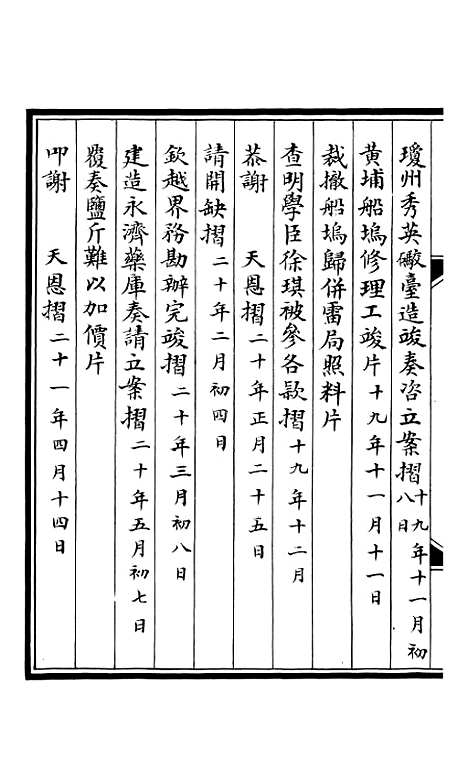 瓊州秀英礮臺造竣奏咨立案摺十九年十一月初八日
黃埔船塢修理工竣片十九年十一月十一日
裁撤船塢歸併雷局照料片
查明學臣徐琪被參各款摺十九年十二月
恭謝 天恩摺二十年正月二十五日
請開缺摺二十年二月初四日
欽越界務勘辦完竣摺二十年三月初八日
建造永濟藥庫奏請立案摺二十年五月初七日
覆奏鹽斤難以加價片
叩謝 天恩摺二十一年四月十四日